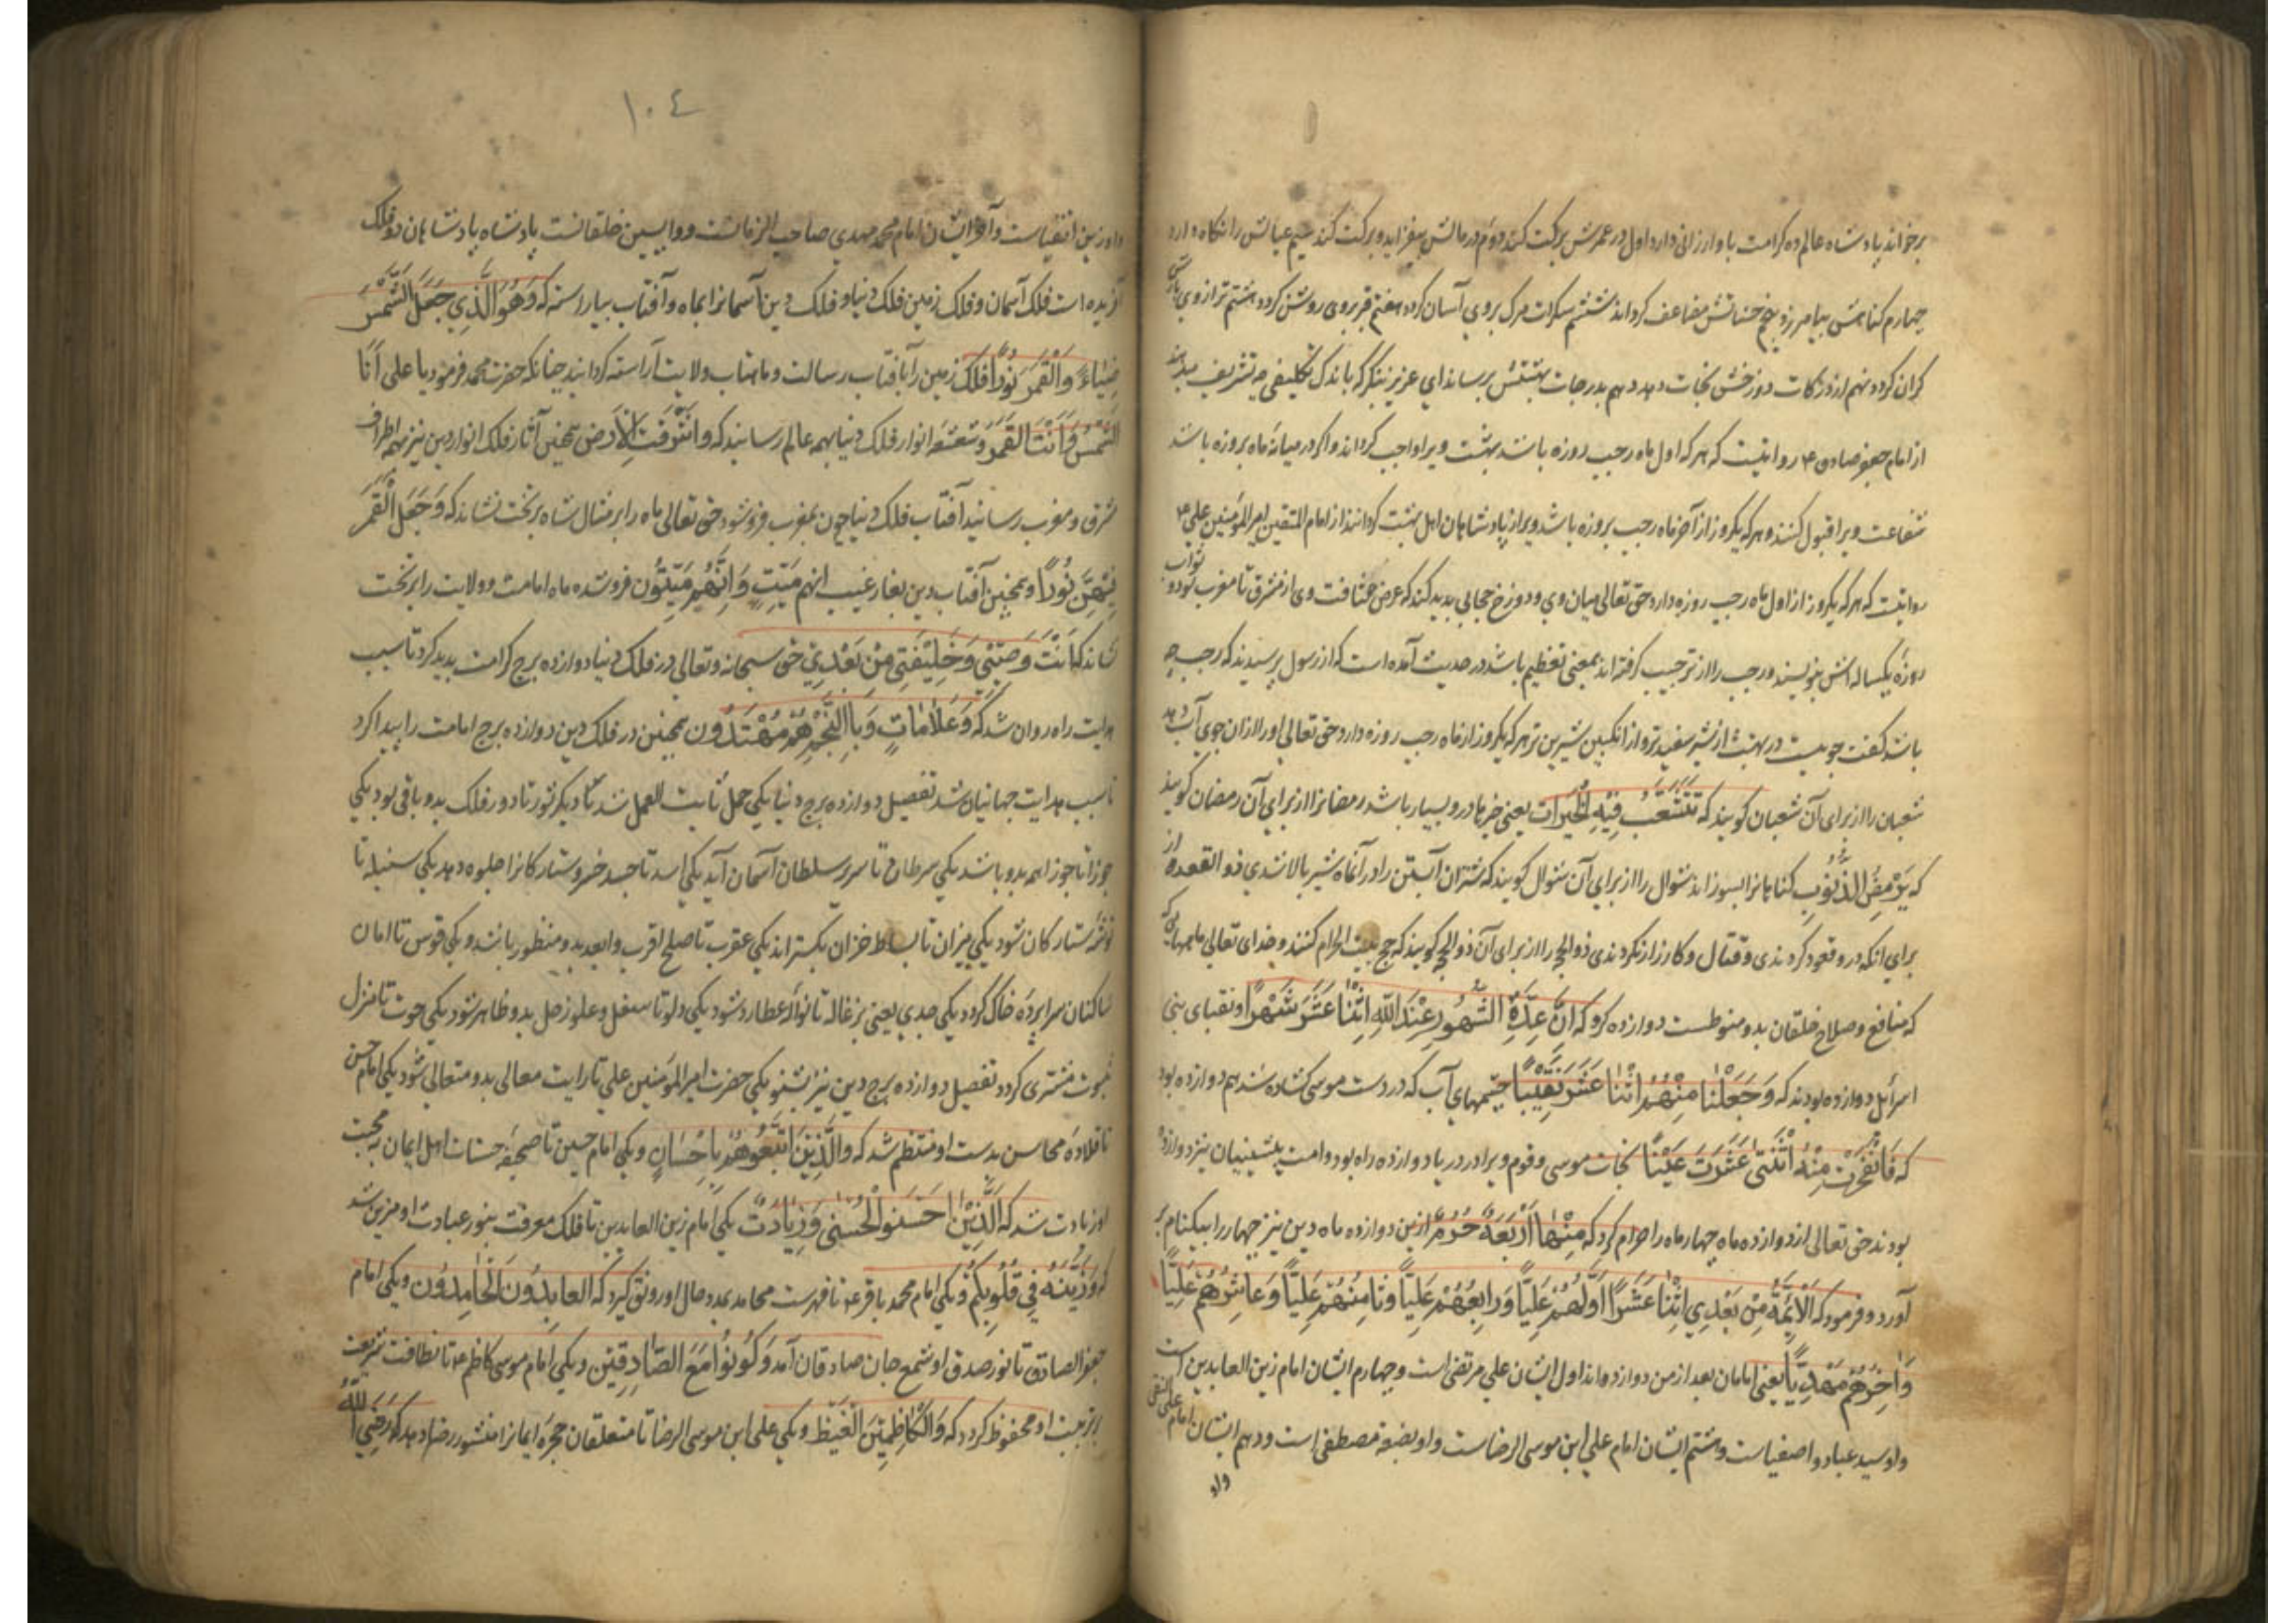 برخواند پادشاه عالم ده کرامت باو ارزانی دارد اول در عمرش برکت کند دوم در مالش بیفزاید و برکت کند سیم عیالش را نگاه دارد
چهارم کناهش بیامرزد پنجم حسناتش مضاعف کرداند ششم سکرات مرک بروی آسان کردد هفتم قبر بروی روشن کردد هشتم ترازوی
کران کردد نهم از درکات دوزخش نجات دهد دهم بدرجات بهشتش برساند ای عزیز بنکر که باندک تکلیفی چه تشریف میدهد
از امام جعفر صادق ع روایتست که هر که اول ماه رجب روزه باشد بهشت ویرا واجب کرداند و اکر در میانه ماه بروزه باشد
شفاعت ویرا قبول کنند و هر که یکروز از آخر ماه رجب بروزه باشد ویرا از پادشاهان اهل بهشت کردانند از امام المتقین امیر المؤمنین علی ع
روایتست که هر که یکروز از اول ماه رجب روزه دارد حق تعالی میان وی و دوزخ حجابی پدید کند که عرض مسافت وی از مشرق تا مغرب بود و ثواب
روزه یکساله اش بنویسند و رجب را از ترجیب کرفته اند بمعنی تعظیم باشد در حدیث آمده است که از رسول پرسیدند که رجب چه
باشد کفت جویست در بهشت از شیر سفیدتر و از انکبین شیرین تر هر که یکروز از ماه رجب روزه دارد حق تعالی اورا از ان جوی آب دهد
شعبان را از برای آن شعبان کویند که تَتَشَعَّبُ فِیْهِ الْخَیْرَات یعنی خیرها درو بسیار باشد رمضانرا از برای آن رمضان کویند
که یَرْمِضُ الذُّنُوْبَ کناهانرا بسوزاند شوال را از برای آن شوال کویند که شتران آبستن را در آنماه شیر بالا شدی ذو القعده را از
برای انکه درو قعود کردندی و قتال و کارزار نکردندی ذو الحجه را از برای آن ذو الحجه کویند که حج بیت الحرام کنند و خدای تعالی ماههای که
که منافع و صلاح خلقان بدو منوطست دوازده کرد که اِنَّ عِدَّةَ الشُّهُوْرِ عِنْدَ اللّٰهِ اثْنٰا عَشَرَ شَهْرًا و نقبای بنی
اسرائل دوازده بودند که وَجَعَلْنٰا مِنْهُمُ اثْنٰا عَشَرَ نَقِیْبًا چشمهای آب که در دست موسی کشاده شد هم دوازده بود
که فَانْفَجَرَتْ مِنْهُ اثْنَتٰی عَشْرَتَ عَیْنًا نجات موسی و قوم ویرا در دریا دوازده راه بود و امت پیشینیان نیز دوازده
بودند حق تعالی از دوازده ماه چهار ماه را حرام کرد که مِنْهٰا اَرْبَعَةٌ حُرُمٌ ازین دوازده ماه دین نیز چهار را بیکنام بر
آورد و فرمود که الْاَئِمَّةُ مِنْ بَعْدِی اثْنٰا عَشَرًا اَوَّلُهُمْ عَلِیًّا وَرَابِعُهُمْ عَلِیًّا وَثَامِنُهُمْ عَلِیًّا وَعَاشِرُهُمْ عَلِیًّا
وَاٰخِرُهُمْ مَهْدِیًّا یعنی امامان بعد از من دوازده اند اول ایشان علی مرتضی است و چهارم ایشان امام زین العابدین است
واو سید عباد و اصفیاست و هشتم ایشان امام علی ابن موسی الرضاست و او بضعه مصطفی است و دهم ایشان امام علی النقی
واو
١٠٤
واو زین اتقیاست و آخر ایشان امام محمد مهدی صاحب الزمانست و واپسین خلقانست پادشاه پادشاهان دو فلک
آفریده است فلک آسمان و فلک زمین فلک دنیا و فلک دین آسمانرا بماه و آفتاب بیاراسته که وَهُوَ الَّذِی جَعَلَ الشَّمْسَ
ضِیٰاءً وَالْقَمَرَ نُوْرًا فلک زمین را بآفتاب رسالت و ماهتاب ولایت آراسته کردانید چنانکه حضرت محمد فرمود یا علی اَنَا
الشَّمْسُ وَاَنْتَ الْقَمَرُ و شعشعه انوار فلک دنیا بهمه عالم رسانید که وَاَشْرَقَتِ الْاَرْضُ همچنین آثار فلک انوار دین نیز بهمه اطراف
شرق و مغرب رسانید آفتاب فلک دنیا چون بمغرب فرو شود حق تعالی ماه را بر مثال شاه بر تخت نشاند که وَجَعَلَ الْقَمَرَ
فِیْهِنَّ نُوْرًا و همچنین آفتاب دین بغار غیب انهم مَیِّتٌ وَاِنَّهُمْ مَیِّتُوْن فرو شده ماه امامت و ولایت را بر تخت
نشاند که اَنْتَ وَصِیِّیْ وَخَلِیْفَتِیْ مِنْ بَعْدِیْ حق سبحانه و تعالی در فلک دنیا دوازده برج کرامت پدید کرد تا سبب
هدایت راه روان شد که وَعَلٰامٰاتٍ وَبِالنَّجْمِ هُمْ مُهْتَدُوْن همچنین در فلک دین دوازده برج امامت را پیدا کرد
تا سبب هدایت جهانیان شد تفصیل دوازده برج دنیا یکی حمل ثابت العمل شد تا دیکر ثور تا دور فلک بدو باقی بود یکی
جوزا تا جوزا هم بدو باشد یکی سرطان تا سریر سلطان آسمان آید یکی اسد تا جسد خسرو ستارکانرا جلوه دهد یکی سنبله تا
توشه ستارکان شود یکی میزان تا بساط خزان بکستراند یکی عقرب تا صلح اقرب و ابعد بدو منظور باشد و یکی قوس تا امان
ساکنان سراپرده خاک کردد یکی جدی یعنی بزغاله تا نواله عطارد شود یکی دلو تا سفل و علو زحل بدو ظاهر شود یکی حوت تا منزل
ثبوت مشتری کردد تفصیل دوازده برج دین نیز بشنو یکی حضرت امیر المؤمنین علی تا رایت معالی بدو متعالی شود یکی امام حسن
تا قلاده محاسن بدست او منتظم شد که وَالَّذِیْنَ اتَّبَعُوْهُمْ بِاِحْسَانٍ و یکی امام حسین تا صحیفه حسنات اهل ایمان به محبت
او زیادت شد که اَلَّذِیْنَ اَحْسَنُوا الْحُسْنٰی وَزِیَادَتٌ یکی امام زین العابدین تا فلک معرفت بنور عبادت او مزین شد
که وَزَیَّنَهُ فِی قُلُوْبِکُمْ و یکی امام محمد باقر ع تا فهرست محامد بمدد حال او رونق کیرد که العابِدُوْنَ الْحٰامِدُوْن و یکی امام
جعفر الصادق تا نور صدق او شمع جان صادقان آمد وَکُوْنُوْا مَعَ الصّٰادِقِیْنَ و یکی امام موسی کاظم ع تا نظافت شریعت
بتربیت او محفوظ کردد که وَالْکٰاظِمِیْنَ الْغَیْظَ و یکی علی ابن موسی الرضا تا متعلقان حجره ایمانرا منشور رضا دهد که رَضِیَ اللّٰهُ